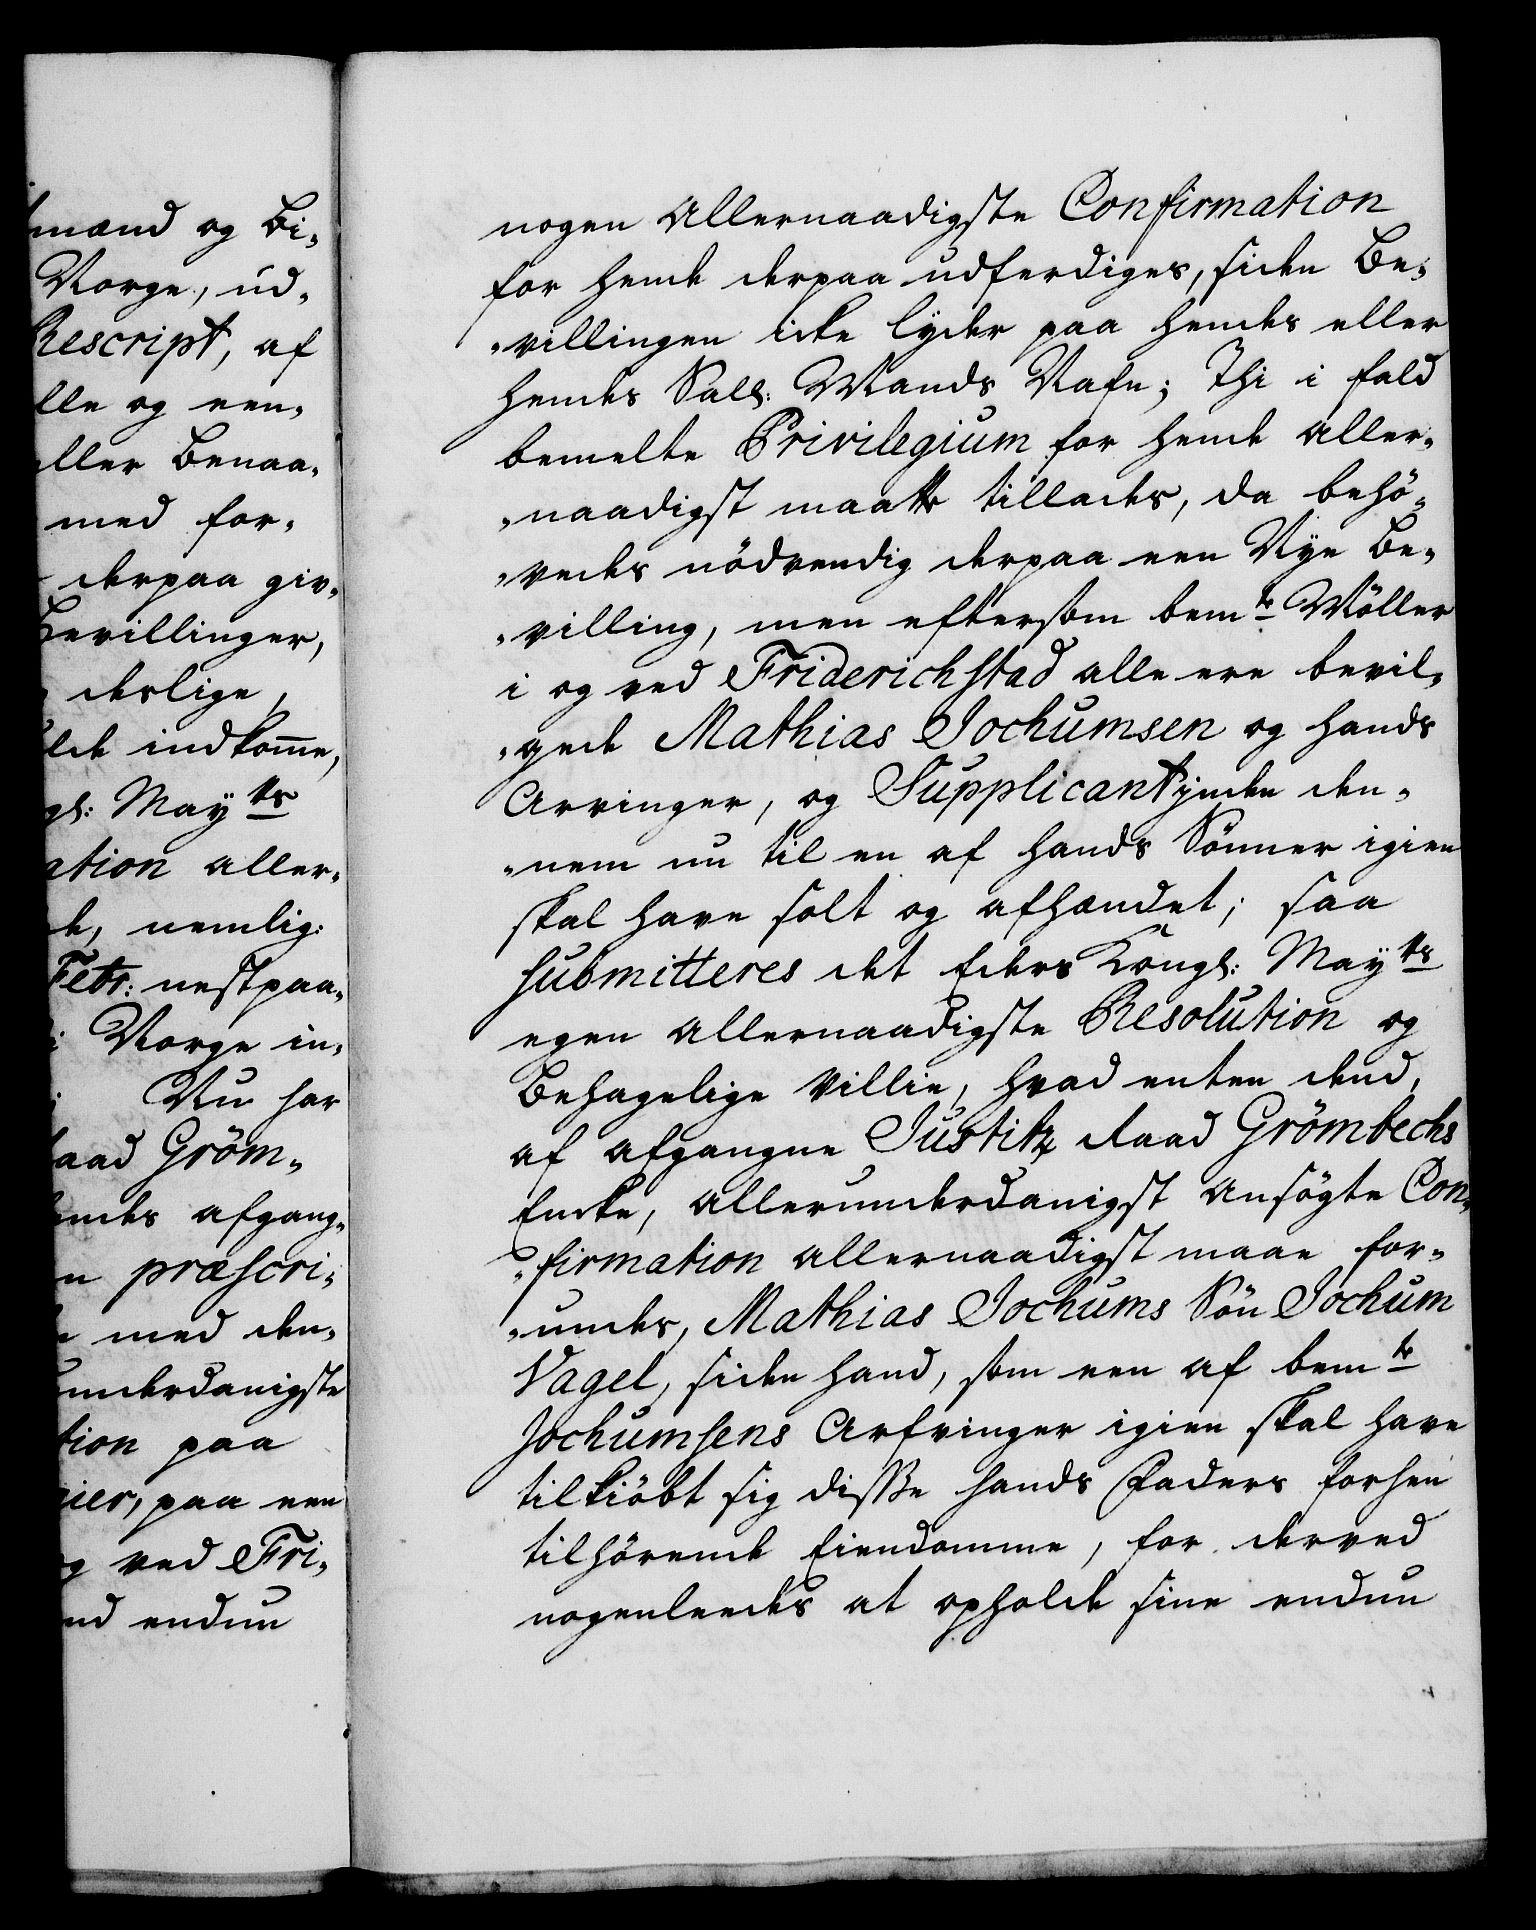 mænd og Bi-
Norge, ud-
Rescript, af
lle og een-
ller Benaa-
med for-
derpaa giv-
Bevillinger,
deslige,
lde indkom̅e,
gl: Mayts
ation aller-
de, nemlig:
Febr: nestpaa-
i Norge in-
Nu har
aad Gröm-
endes afgang-
n præscri-
med den-
underdanigste
tion paa
ier, paa een
og ved Fri-
nd endnu
nogen Allernaadigste Confirmation
for hende derpaa udferdiges, siden Be-
-villingen icke lyder paa hendes eller
hendes Sall: Mands Nafn; Thi i fald
bemelte Privilegium for hende aller-
-naadigst maatte tillades, da behö-
-vedes nödvendig derpaa een Nye Be-
-villing, men eftersom bemte Möller
i og ved Friderichstad alle ere bevil-
-gede Mathias Jochumsen og hands
Arvinger, og Supplicantinden den-
-nem nu til en af hands Sönner igien
skal have solt og afhændet; saa
submitteres det Eders Kongl: Mayts
egen allernaadigste Resolution og
Behagelige Villie, hvad enten dend,
af afgangne Justitz Raad Grömbechs
Encke, allerunderdanigst ansögte Con-
-firmation allernaadigst maae for-
-undes, Mathias Jochums Sön Jochum
Vagel, siden hand, som een af bemte
Jochumsens Arfvinger igien skal have
tilkiöbt sig disse hands Faders forhen
tilhörende Eiendomme, for derved
nogenleedes at opholde sine endnu